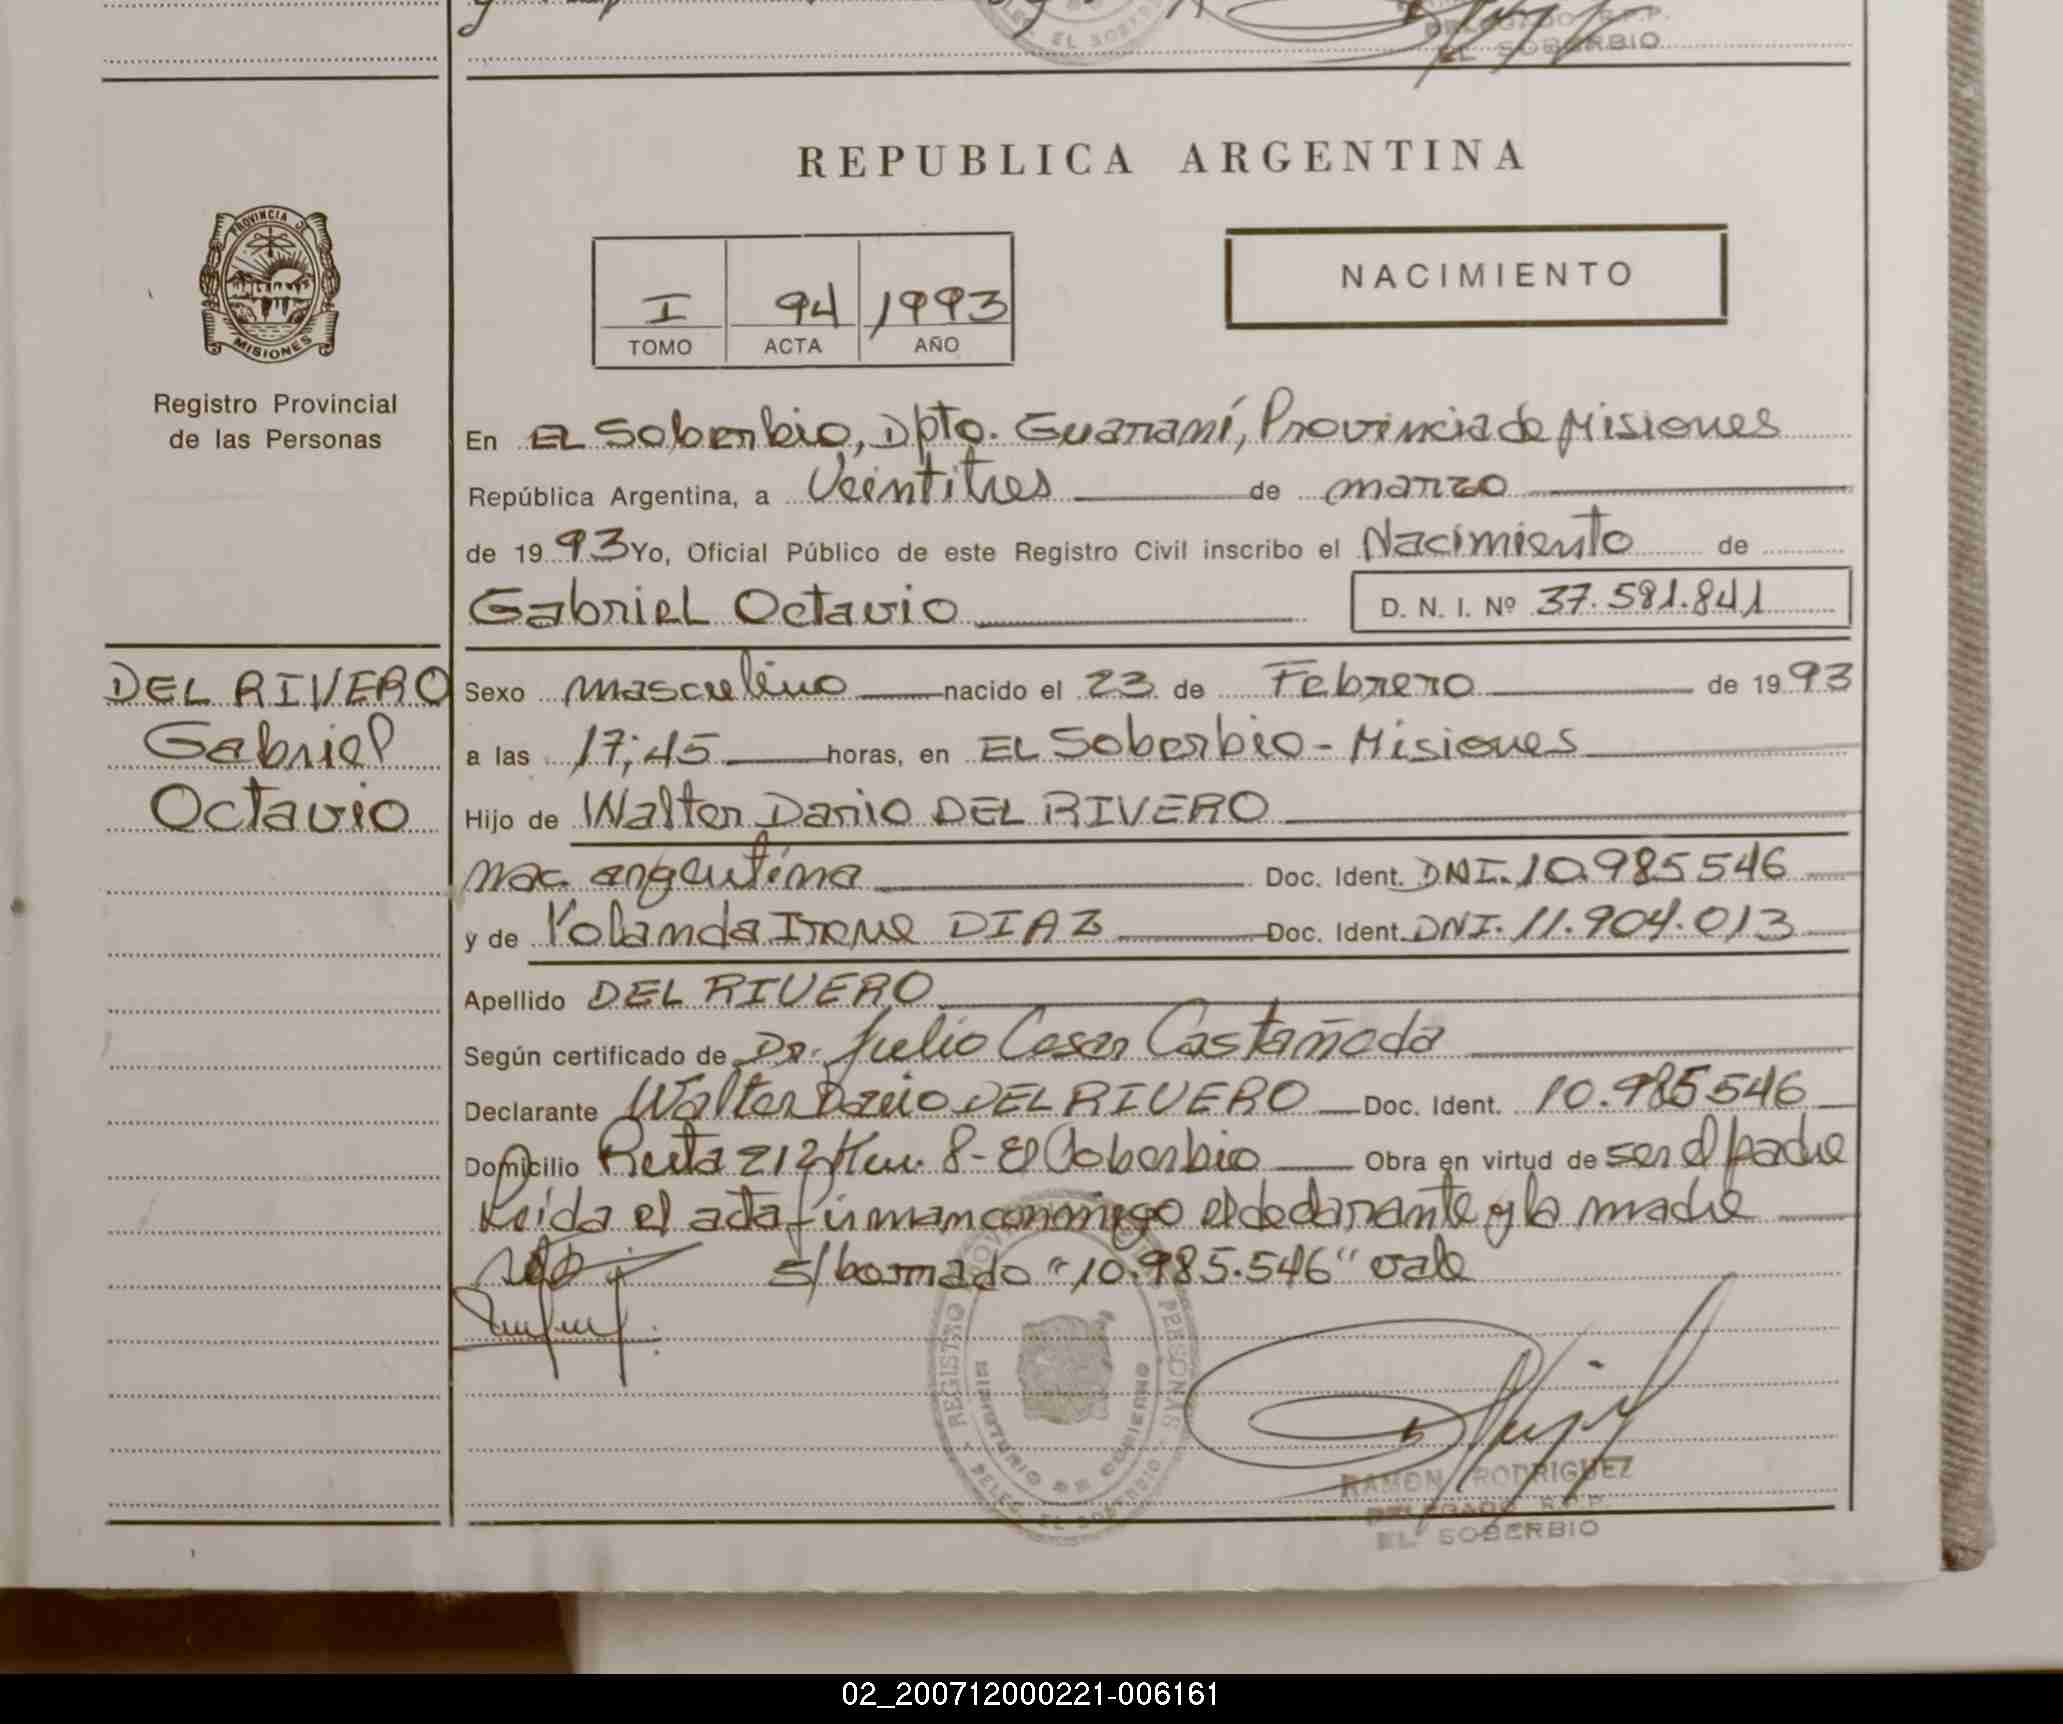 EL SOBERBIO
DELEGADO R.P.P.
EL SOBERBIO
REPUBLICA ARGENTINA
PROVINCIA DE
MISIONES
Registro Provincial
de las Personas
I 94 1993
TOMO ACTA AÑO
NACIMIENTO
En EL Soberbio, Dpto. Guaraní, Provincia de Misiones
República Argentina, a Veintitres de marzo
de 1993 Yo, Oficial Público de este Registro Civil inscribo el Nacimiento de
Gabriel Octavio D. N. I. Nº 37.581.841
DEL RIVERO
Gabriel
Octavio
Sexo masculino nacido el 23 de Febrero de 1993
a las 17;45 horas, en EL Soberbio - Misiones
Hijo de Walter Dario DEL RIVERO
nac. argentina Doc. Ident. DNI. 10.985546
y de Yolanda Irene DIAZ Doc. Ident. DNI. 11.904.013
Apellido DEL RIVERO
Según certificado de Dr. Julio Cesar Castañeda
Declarante Walter Dario DEL RIVERO Doc. Ident. 10.985546
Domicilio Ruta 212 Km. 8 - El Soberbio Obra en virtud de ser el padre
Leida el acta firman conmigo el declarante y la madre
s/borrado "10.985.546" vale
REGISTRO PROVINCIAL DE LAS PERSONAS
MINISTERIO DE GOBIERNO
DELEG. EL SOBERBIO
RAMON RODRIGUEZ
DELEGADO R.P.P.
EL SOBERBIO
02_200712000221-006161